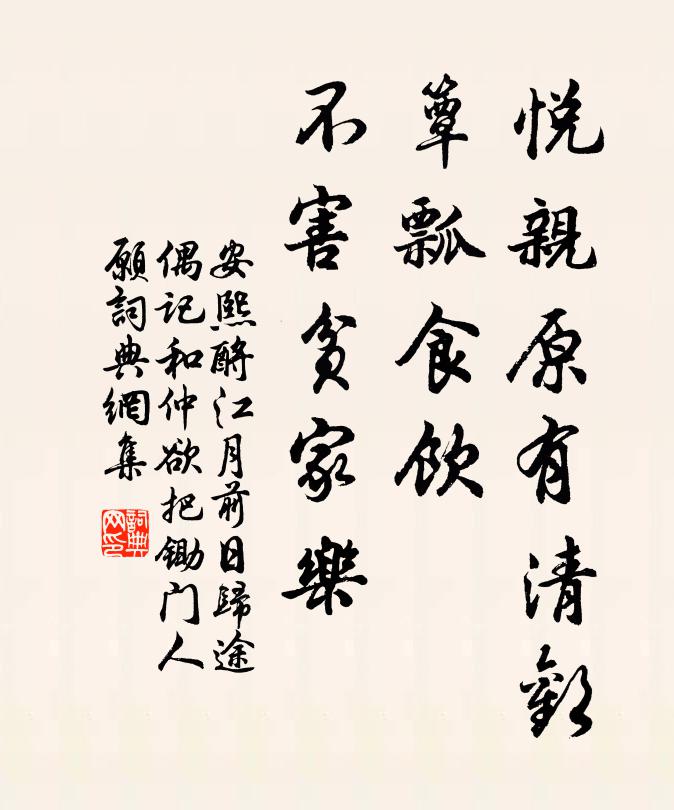 悦親原有清歡
簞瓢食飲
不害貧家樂
安熙酹江月前日歸途
偶記和仲欲把鋤门人
願詞典網集
詞典
网印